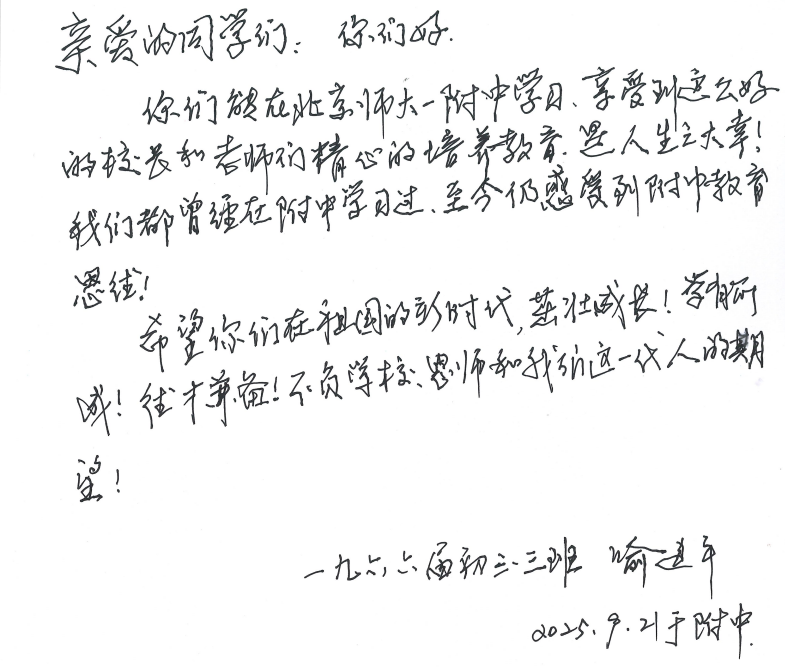 亲爱的同学们：你们好.
你们能在北京师大一附中学习、享受到这么好
的校长和老师们精心的培养教育.是人生之大幸！
我们都曾经在附中学习过、至今仍感受到附中教育
恩德！
希望你们在祖国的新时代,茁壮成长！学有所
成！德才兼备！不负学校、恩师和我们这一代人的期
望！
一九六六届初三.三班 喻
2025.9.21于附中.